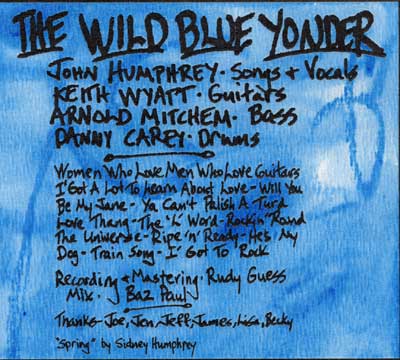 THE WILD BLUE YONDER
JOHN HUMPHREY · Songs + Vocals
KEITH WYATT · Guitars
ARNOLD MITCHEM · Bass
DANNY CAREY · Drums
Women Who Love Men Who Love Guitars
I Got A Lot To Learn About Love - Will You
Be My Jane - Ya Can't Polish A Turd
Love Thang - The "L" Word - Rockin' 'Round
The Universe - Ripe 'n' Ready - He's My
Dog - Train Song - I Got To Rock
Recording + Mastering · Rudy Guess
Mix · Baz Paul
Thanks - Joe, Jen, Jeff, James, Lisa, Becky
"Spring" by Sidney Humphrey